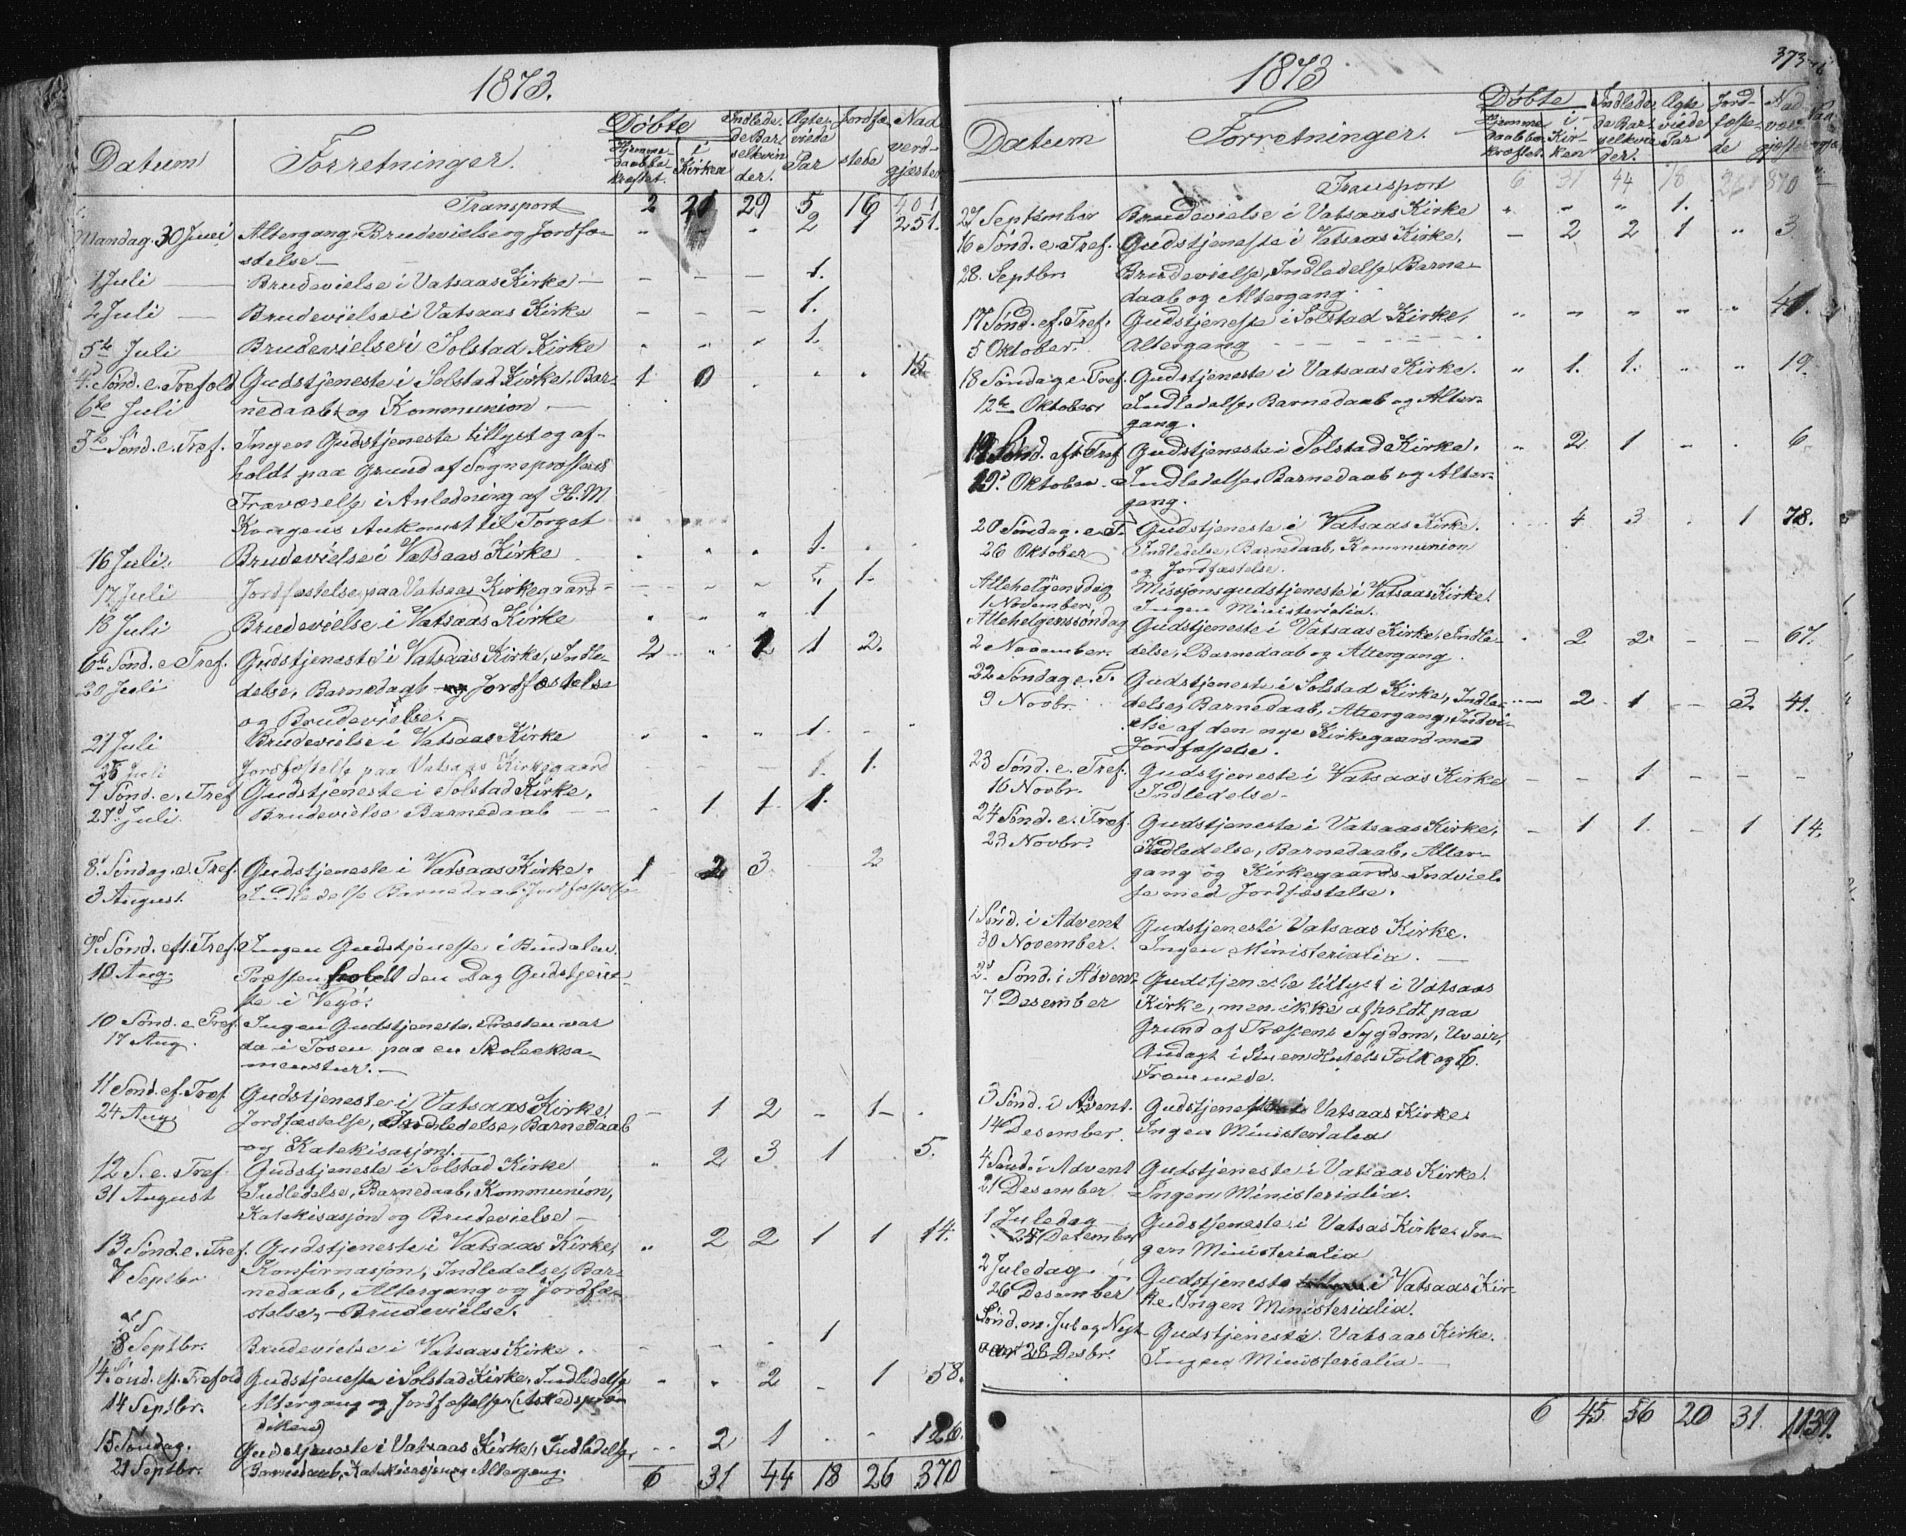 1873.
Datum Forretninger. Døbte Indlede- Ægte- Jordfæ- Nad
Hjemme- i de Bar viede stede verd-
daab be Kirken selkvin Par gjæster
kræftet. der.
Transport 2 21 29 5 16 401
Mandag 30 Juni Altergang Brudevielse og Jordfæ- - - - 2 1 251.
stelse
1 Juli Brudevielse i Vatsaas Kirke - - - 1.
2 Juli Brudevielse i Vatsaas Kirke - - - 1.
5te Juli Brudevielse i Solstad Kirke 1.
4. Sønd. e. Trefold Gudstjeneste i Solstad Kirke. Bar- 1 0 15
6te Juli nedaab og Kommunion
5te Sønd. e. Tref. Ingen Gudstjeneste tillyst og af-
holdt paa Grund af Sognepræstens
Fraværelse i Anledning af H. M.
Kongens Ankomst til Torget
16 Juli. Brudevielse i Vatsaas Kirke 1.
17 Juli Jordfæstelse paa Vatsaas Kirkegaard 1.
18 Juli Brudevielse i Vatsaas Kirke 1
6te Sønd. e Tref. Gudstjeneste i Vatsaas Kirke, Indle- 2 1 1 2.
20 Juli delse, Barnedaab Jordfæstelse
og Brudevielse.
21 Juli Brudevielse i Vatsaas Kirke 1.
Juli Jordfæstelse paa Vatsaas Kirkegaard 1.
7 Sønd. e. Tref Gudstjeneste i Solstad Kirke, 1 1 1.
27. Juli Brudevielse Barnedaab
8. Søndag e. Tref. Gudstjeneste i Vatsaas Kirke. 1 2 3 2
3 August. Indledelse Barnedaab Jordfæstelse
9d Sønd. eft. Tref. Ingen Gudstjeneste i Bindalen.
10 Aug. Præsten holdt den Dag Gudstjene-
ste i Vegø.
10 Sønd. e. Tref. Ingen Gudstjeneste. Præsten var
17 Aug. da i Tosen paa en Skoleeksa-
menstur.
11 Sønd. ef. Tref Gudstjeneste i Vatsaas Kirke. - 1 2 - 1 -
24 Aug Jordfæstelse, Indledelse, Barnedaab
og Katekisasjon.
12 S. e. Tref. Gudstjeneste i Solstad Kirke 2 3 1 5.
31 August Indledelse, Barnedaab, Kommunion,
Katekisasjon og Brudevielse
13 Sønd. e. Tref. Gudstjeneste i Vatsaas Kirke, 2 2 1 1 14.
7 Septbr Konfirmasjon, Indledelse, Bar-
nedaab, Altergang og Jordfæ-
stelse, - Brudevielse.
8 Septbr. Brudevielse i Vatsaas Kirke. 1
14. Sønd. eft. Trefold Gudstjeneste i Solstad Kirke, Indledelse 2 - 1 58.
14 Septbr. Altergang og Jordfæstelse (Afskedspræ-
diken)
15 Søndag. Gudstjeneste i Vatsaas Kirke, Indledelse, 2 1 126.
21 Septbr. Barnedaab, Katekisasjon og Altergang.
6 31 44 18 26 370
1873 373
Datum Forretninger. Døbte Indlede- Ægte Jord- Nad
Hjemme- i de Bar- viede fæste- ver
daab be- Kir- selkvin- Par de gjæster
kræftet. ken der.
Transport 6 31 44 18 26 870
27 September Brudevielse i Vatsaas Kirke 1.
16 Sønd. e. Tref. Gudstjeneste i Vatsaas Kirke, - 2 2 1 3
28. Septbr. Brudevielse, Indledelse, Barne-
daab og Altergang
17 Sønd. ef. Tref. Gudstjeneste i Solstad Kirke, 41.
5 Oktober. Altergang
18 Søndag e. Tref. Gudstjeneste i Vatsaas Kirke. 1. 1. 19.
12te Oktober Indledelse, Barnedaab og Alter-
gang.
19 Sønd. eft Tref Gudstjeneste i Solstad Kirke. 2 1 - 6
19. Oktober. Indledelse, Barnedaab og Alter-
gang.
20 Søndag. e. T. Gudstjeneste i Vatsaas Kirke. 4 3 1 78.
26 Oktober Indledelse, Barnedaab, Kommunion
og Jordfæstelse.
Allehelgensdag Missjonsgudstjeneste i Vatsaas Kirke.
1 November. Ingen Ministerialia.
Allehelgenssøndag Gudstjeneste i Vatsaas Kirke, Indle- 2 2 - - 67.
2 November. delse, Barnedaab og Altergang.
22 Søndag e. T. Gudstjeneste i Solstad Kirke, Indle-
9 Novbr. delse, Barnedaab, Altergang, Indvi- 2 1 - 3 41.
else af den nye Kirkegaard med
Jordfæstelse.
23 Sønd. e. Tref. Gudstjeneste i Vatsaas Kirke - - 1 - - -
16 Novbr. Indledelse.
24 Sønd. e. Tref. Gudstjeneste i Vatsaas Kirke, - 1 1. - 1 14.
23 Novbr. Indledelse, Barnedaab, Alter-
gang og Kirkegaards Indviel-
se med Jordfæstelse.
1 Sønd. i Advent Gudstjeneste i Vatsaas Kirke.
30 November. Ingen Ministerialia.
2. Sønd. i Advent Gudstjeneste tillyst i Vatsaas
7 Desember Kirke, men ikke afholdt paa
Grund af Præstens Sygdom, Uveir,
Andagt i Huset Folk og 6.
Fremmede.
3 Sønd. i Advent. Gudstjeneste i Vatsaas Kirke
14 Desember. Ingen Ministerialia
4 Sønd. i Advent Gudstjeneste i Vatsaas Kirke.
21 Desember Ingen Ministerialia.
1 Juledag Gudstjeneste i Vatsaas Kirke. In-
25 Desember gen Ministerialia
2 Juledag Gudstjeneste i Vatsaas Kir-
26 Desember ke. Ingen Ministerialia.
Sønd. m. Jul og Nyt- Gudstjeneste i Vatsaas Kirke.
aar 28 Desbr. Ingen Ministerialia
6 45 56 20 31. 1139.